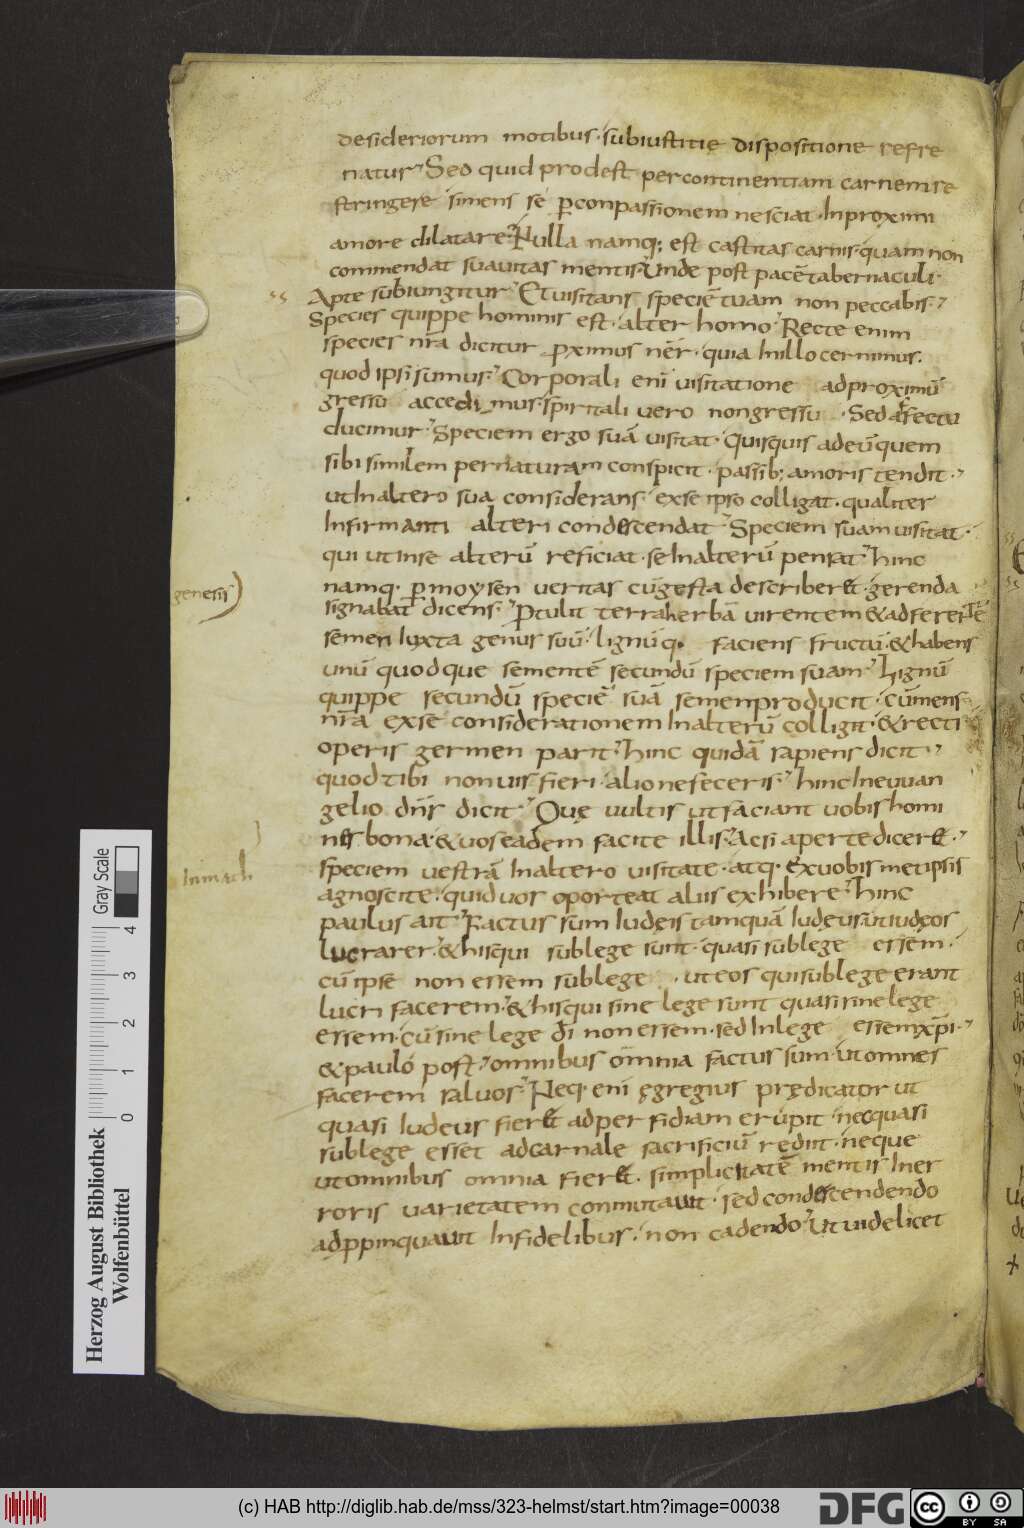 desideriorum motibus· sub iustitię dispositione refre
natur· Sed quid prodest per continentiam carnem re
stringere si mens se p conpassionem nesciat· In proximi
amore dilatare· Nulla namq; est castitas carnis· quam non
commendat suauitas mentis· Unde post pacē tabernaculi·
Apte subiungitur· Et uisitans speciē tuam non peccabis·
Species quippe hominis est· alter homo· Recte enim
species nr̄a dicitur pximus nēr· quia In illo cernimus.
quod ipsi sumus· Corporali eni uisitatione ad proximū
gressu accedimus· spiritali uero non gressu· Sed affectu
ducimur· Speciem ergo suā uisitat· quisquis ad eū quem
sibi similem per naturam conspicit· passib; amoris tendit·
ut In altero sua considerans· ex se ipso colligat· qualiter
Infirmanti alteri condescendat· Speciem suam uisitat·
qui ut in se alterū reficiat· se In alterū pensat· hinc
genesis
namq· p moysen ueritas cū gesta describeret· gerenda
signabat dicens· Ptulit terra herbā uirentem & adferentē
semen Iuxta genus suū· lignūq· faciens fructū· & habens
unū quodque sementē secundū speciem suam· Lignū
quippe secundū speciē suā semen producit· cū mens
nr̄a ex se considerationem In alterū colligit· & recti
operis germen parit· hinc quidā sapiens dicit·
quod tibi non uis fieri· alio ne feceris· hinc In euuan
gelio dn̄s dicit· Quę uultis ut faciant uobis homi
nes bona· & uos eadem facite illis· Ac si aperte diceret·
speciem uestrā In altero uisitate· atq· ex uobis metipsis
agnoscite· quid uos oporteat aliis exhibere· hinc
paulus ait· Factus sum Iudeis tamquā Iudeus· ut iudęos
lucrarer· & his qui sub lege sunt· quasi sub lege essem·
cū ipse non essem sub lege· ut eos qui sub lege erant
lucri facerem· & his qui sine lege sunt quasi sine lege
essem· cū sine lege dī non essem· sed In lege essem xp̄i·
& paulo post· omnibus omnia factus sum· ut omnes
facerem saluos· Neq· eni ęgregius prędicator ut
quasi Iudeus fieret ad perfidiam erupit· nec quasi
sub lege esset ad carnale sacrificiū rediit· neque
ut omnibus omnia fieret· simplicitatē mentis In er
roris uarietatem conmutauit· sed condescendendo
adppinquauit Infidelibus· non cadendo· Ut uidelicet
Herzog August Bibliothek
Wolfenbüttel
0 1 2 3 4
Gray Scale
(c) HAB http://diglib.hab.de/mss/323-helmst/start.htm?image=00038
DFG
cc
BY SA